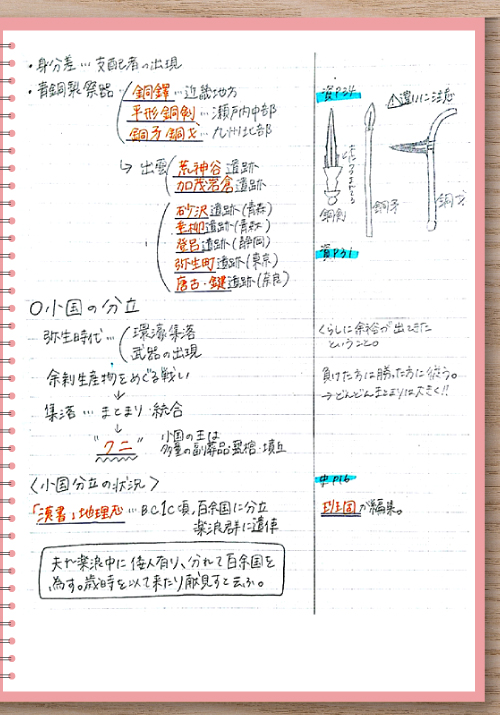 ・身分差…支配者の出現
・青銅製祭器
銅鐸…近畿地方
平形銅剣…瀬戸内中部
銅矛銅戈…九州北部
↳出雲
荒神谷遺跡
加茂岩倉遺跡
砂沢遺跡(青森)
垂柳遺跡(青森)
登呂遺跡(静岡)
弥生町遺跡(東京)
唐古・鍵遺跡(奈良)
〇小国の分立
弥生時代…
環濠集落
武器の出現
余剰生産物をめぐる戦い
↓
集落…まとまり・統合
↓
"クニ"
小国の王は
多量の副葬品・甕棺・墳丘
〈小国分立の状況〉
「漢書」地理志…BC1C頃、百余国に分立
楽浪群に遣使
夫れ楽浪中に倭人有り、分れて百余国を
為す。歳時を以て来たり献見すと云ふ。
資P24
違いに注意
銅剣
銅矛
銅戈
資P31
くらしに余裕が出てきた
ということ。
負けた方は勝った方に従う。
→どんどんまとまりは大きく!!
史P16
班固が編集。